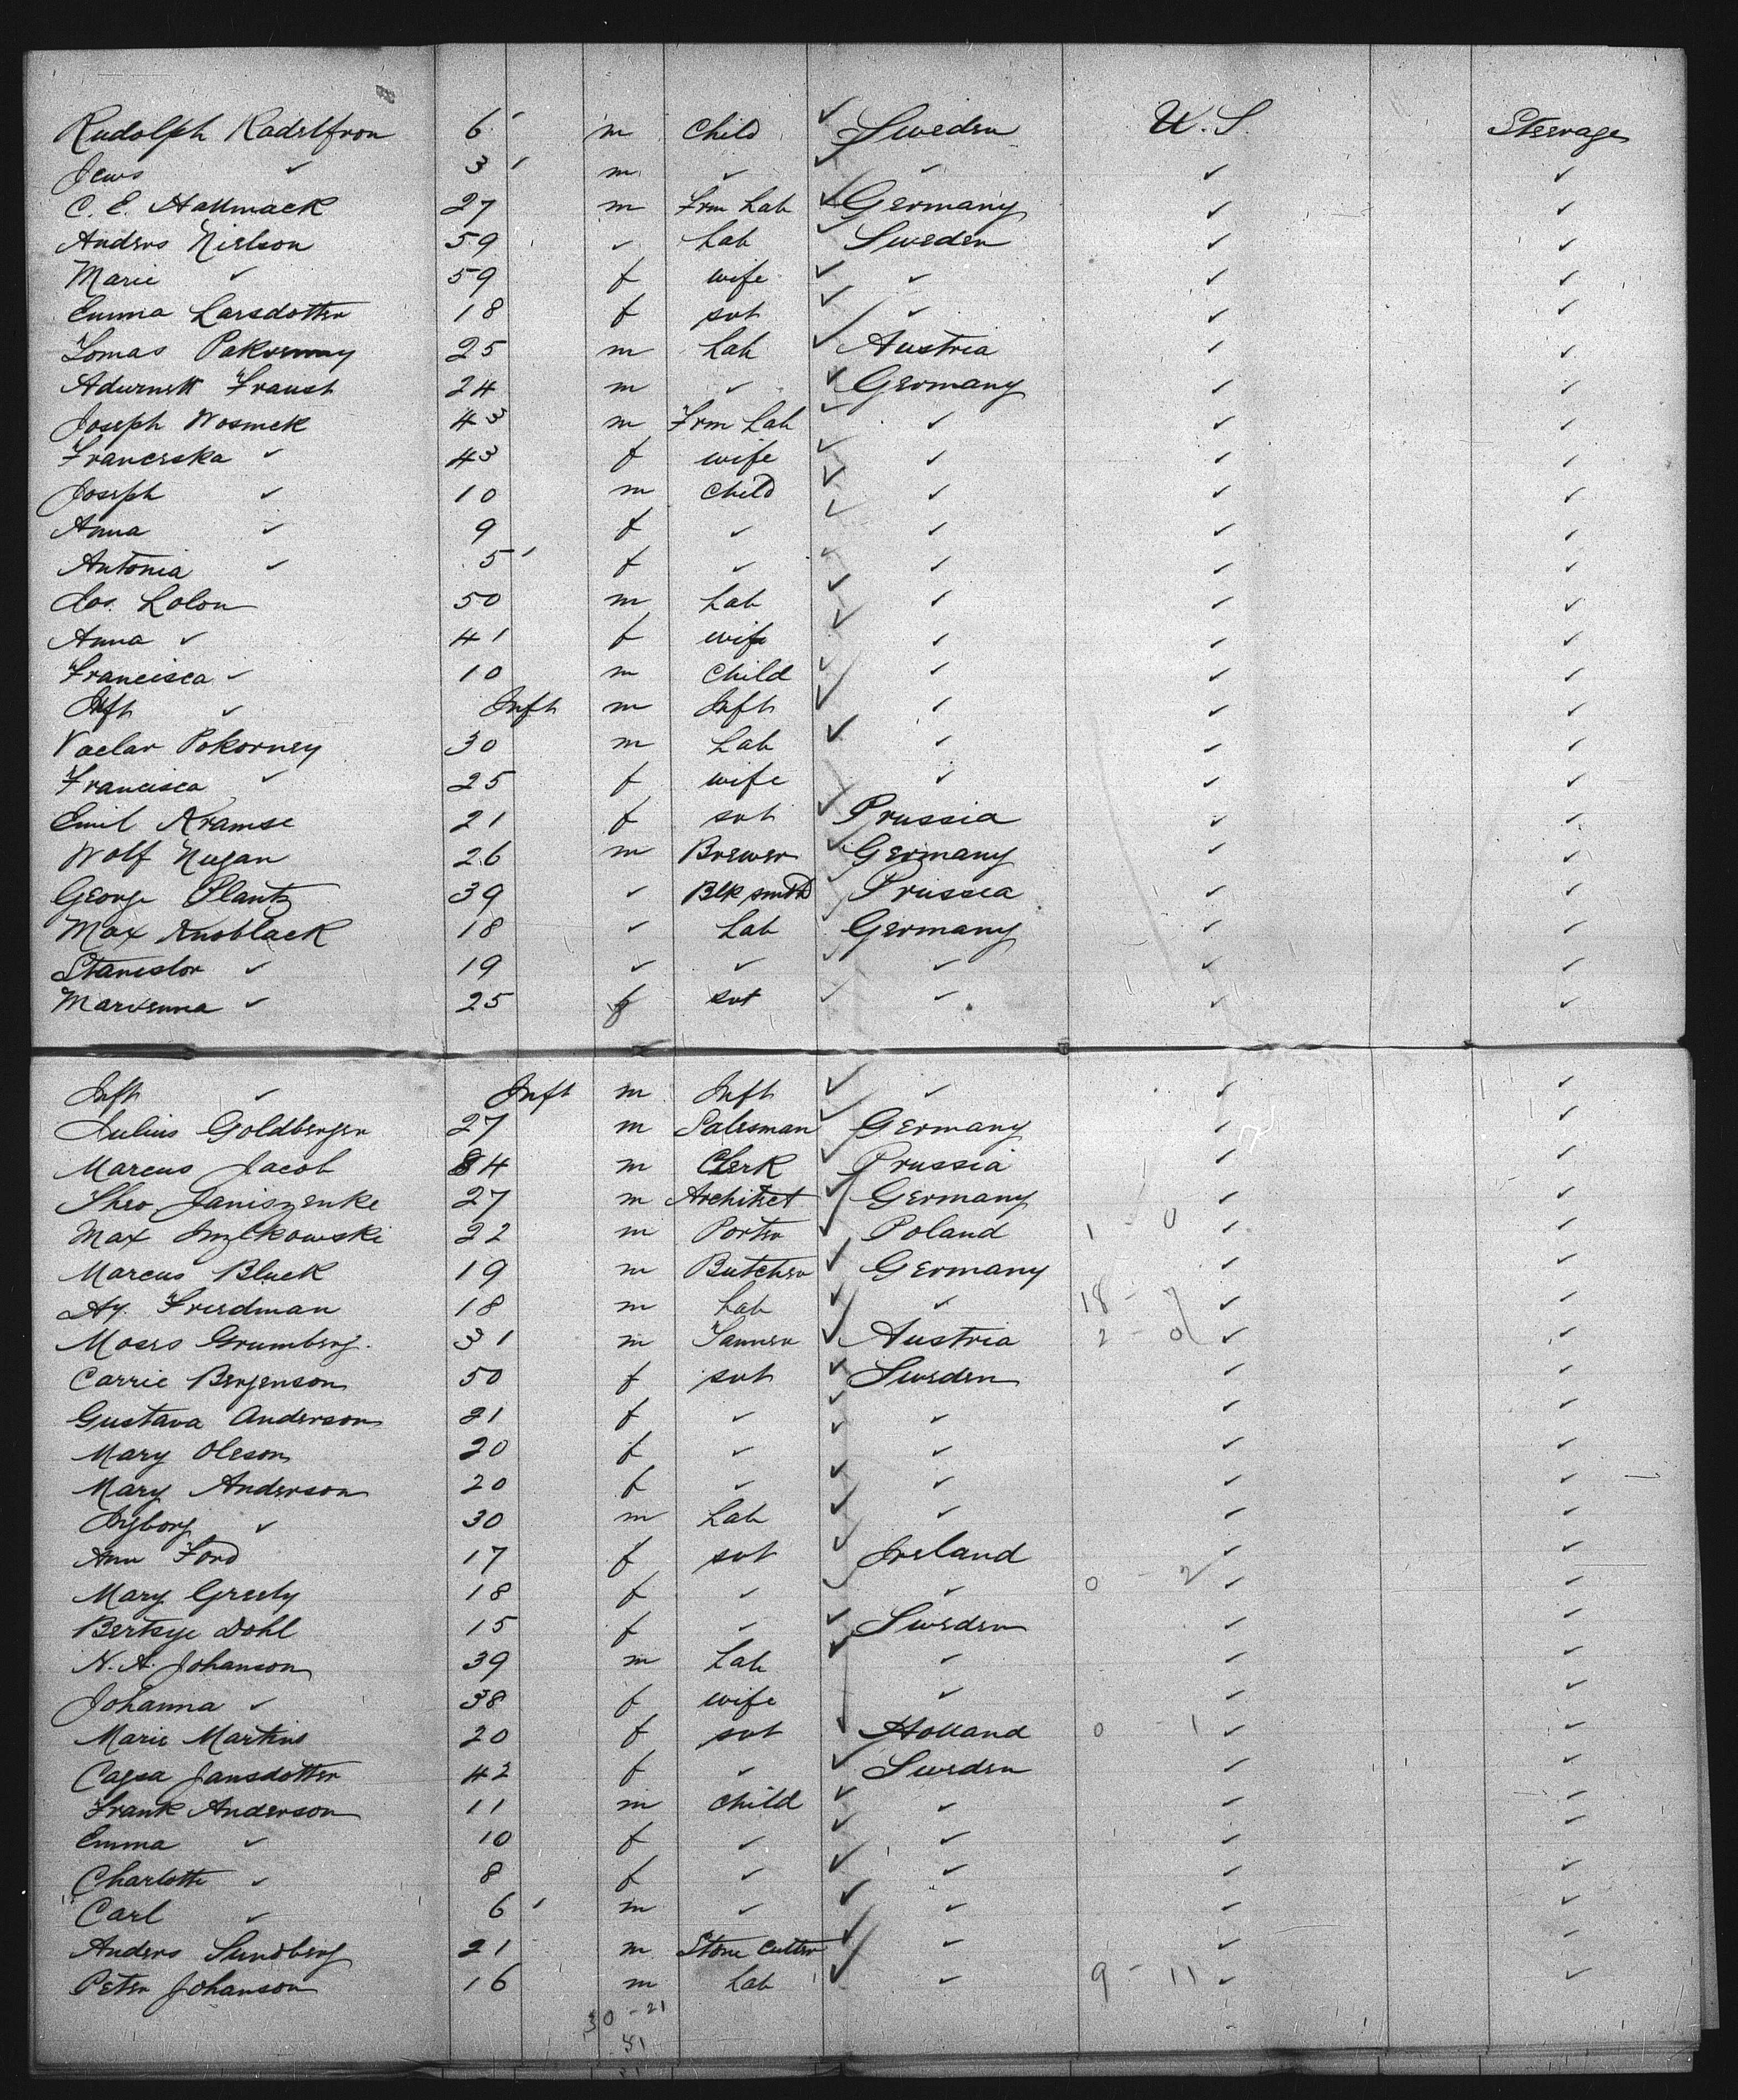 Rudolph Radelfron 6 m Child Sweden U.S. Steerage
Jews ✓ 3 m ✓ ✓ ✓ ✓
C. E. Hallmack 27 m Frm Lab Germany ✓ ✓
Anders Nielson 59 ✓ Lab Sweden ✓ ✓
Marie ✓ 59 f wife ✓ ✓ ✓
Emma Larsdotter 18 f svt ✓ ✓ ✓
Tomas Pakorny 25 m Lab Austria ✓ ✓
Fraust 24 m ✓ Germany ✓ ✓
Joseph Wosmek 43 m Frm Lab ✓ ✓ ✓
Franceska ✓ 43 f wife ✓ ✓ ✓
Joseph ✓ 10 m Child ✓ ✓ ✓
Anna ✓ 9 f ✓ ✓ ✓ ✓
Antonia ✓ 5 f ✓ ✓ ✓ ✓
Jos. Lolon 50 m Lab ✓ ✓ ✓
Anna ✓ 41 f wife ✓ ✓ ✓
Francisca ✓ 10 m Child ✓ ✓ ✓
Inft ✓ Inft m Inft ✓ ✓ ✓
Vaclav Pokorney 30 m Lab ✓ ✓ ✓
Francisca ✓ 25 f wife ✓ ✓ ✓
Emil Kramse 21 f svt Prussia ✓ ✓
Wolf Nugan 26 m Brewer Germany ✓ ✓
George Plantz 39 ✓ Blk smith Prussia ✓ ✓
Max Knoblack 18 ✓ Lab Germany ✓ ✓
Stanislov ✓ 19 ✓ ✓ ✓ ✓ ✓
Marienna ✓ 25 f svt ✓ ✓ ✓
Inft ✓ Inft m Inft ✓ ✓ ✓
Julius Goldberger 27 m Salesman Germany ✓ ✓
Marcus Jacob 34 m Clerk Prussia ✓ ✓
Theo Janiszenke 27 m Architect Germany ✓ ✓
Max 22 m Porter Poland 1 - 0 ✓ ✓
Marcus Bluck 19 m Butcher Germany ✓ ✓
Hy. Friedman 18 m Lab ✓ 18 - 7 ✓ ✓
Moses Grumberg. 31 m Tanner Austria 2 - 0 ✓ ✓
Carrie Bergenson 50 f svt Sweden ✓ ✓
Gustava Anderson 21 f ✓ ✓ ✓ ✓
Mary Oleson 20 f ✓ ✓ ✓ ✓
Mary Anderson 20 f ✓ ✓ ✓ ✓
Ingborg ✓ 30 m Lab ✓ ✓ ✓
Ann Ford 17 f svt Ireland ✓ ✓
Mary Greely 18 f ✓ ✓ 0 - 2 ✓ ✓
Bertsye Dohl 15 f ✓ Sweden ✓ ✓
N. A. Johanson 39 m Lab ✓ ✓ ✓
Johanna ✓ 38 f wife ✓ ✓ ✓
Marie Martins 20 f svt Holland 0 - 1 ✓ ✓
Cajsa Jansdotter 42 f ✓ Sweden ✓ ✓
Frank Anderson 11 m Child ✓ ✓ ✓
Emma ✓ 10 f ✓ ✓ ✓ ✓
Charlotte ✓ 8 f ✓ ✓ ✓ ✓
Carl ✓ 6 m ✓ ✓ ✓ ✓
Anders Sundberg 21 m Stone Cutter ✓ ✓ ✓
Peter Johanson 16 m Lab ✓ 9 - 11 ✓ ✓
30 - 21
51